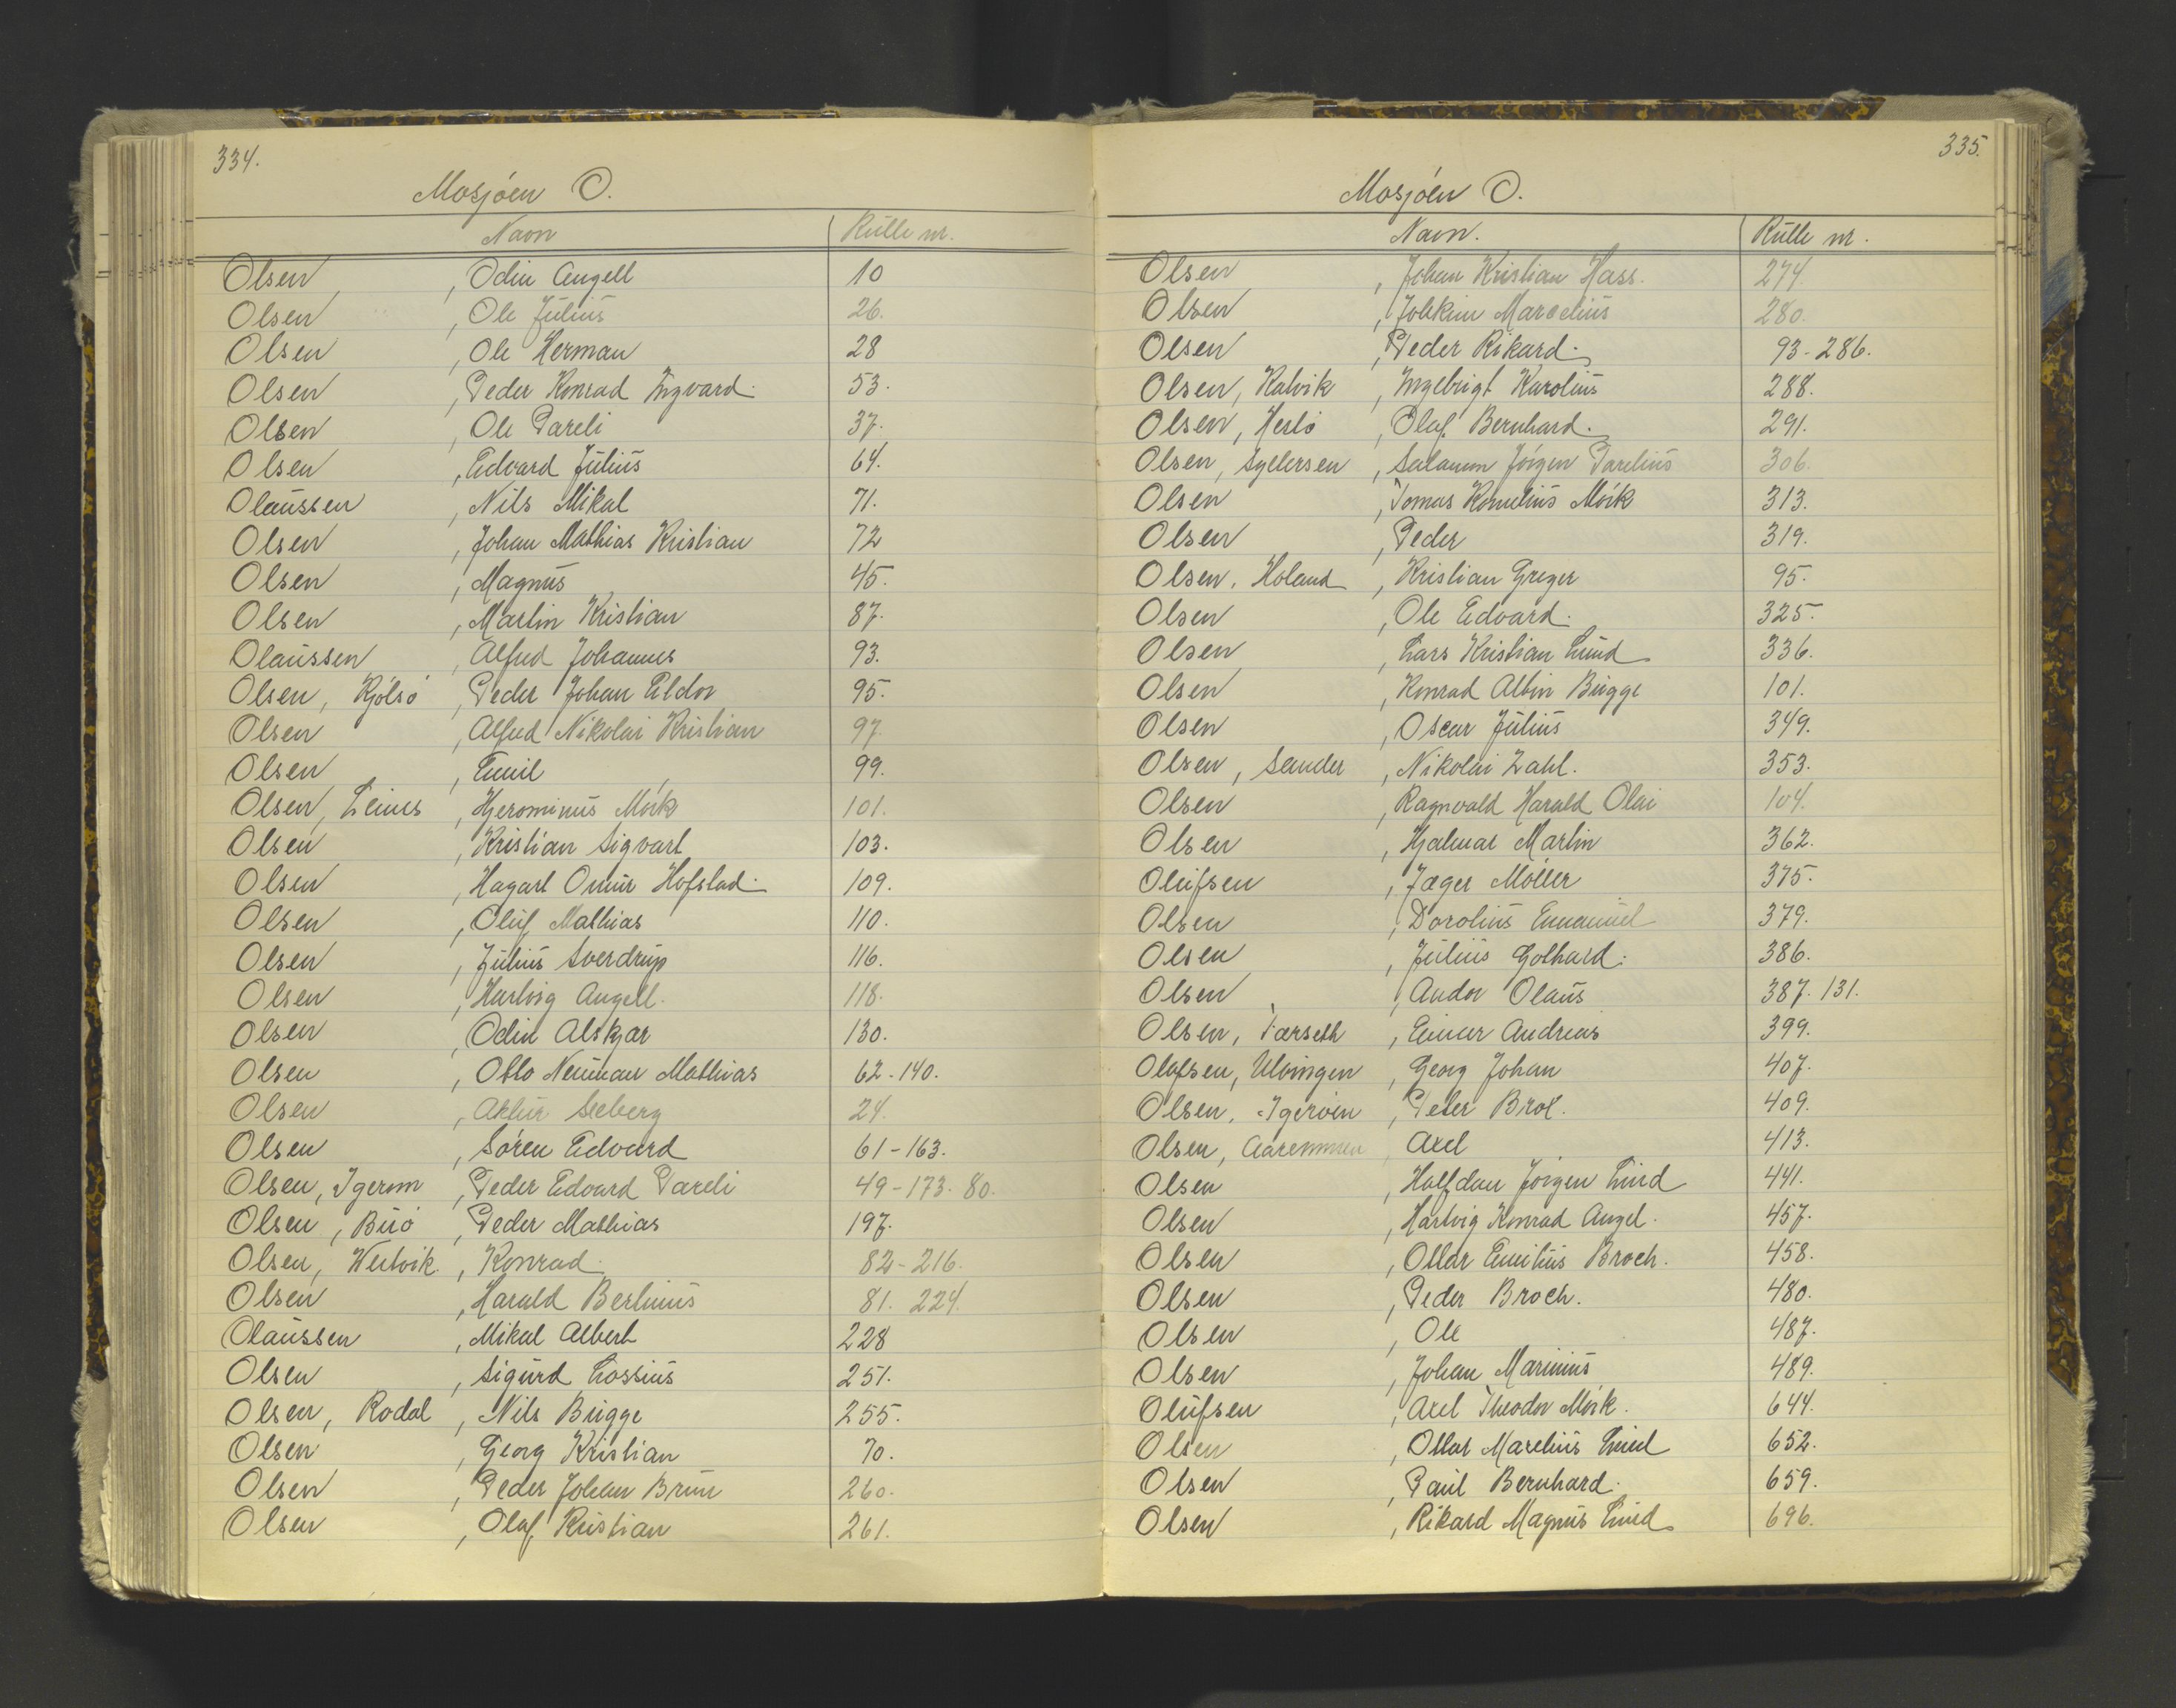 334.
Mosjöen O.
Navn Rulle nr.
Olsen, Odin Angell 10
Olsen, Ole Julius 26.
Olsen, Ole Herman 28
Olsen, Peder Konrad Ingvard. 53.
Olsen, Ole Pareli 37.
Olsen, Edvard Julius 64.
Olaussen, Nils Mikal 71.
Olsen, Johan Mathias Kristian 72
Olsen, Magnus 45.
Olsen, Martin Kristian 87.
Olaussen, Alfred Johannes 93.
Olsen, Kjölsö, Peder Johan Eldor 95.
Olsen, Alfred Nikolai Kristian 97.
Olsen, Emil 99.
Olsen, Leines, Hjerominus Mörk 101.
Olsen, Kristian Sigvart 103.
Olsen, Hagart Hofstad. 109.
Olsen, Oluf Mathias 110.
Olsen, Julius Sverdrup 116.
Olsen, Hartvig Angell. 118.
Olsen, Odin Alskjar 130.
Olsen, Otto Neuman Mathias 62-140.
Olsen, Artur Seeberg 24.
Olsen, Sören Edvard 61-163.
Olsen, Igerom, Peder Edvard Pareli 49-173. 80.
Olsen, Buö, Peder Mathias 197.
Olsen, Vestvik, Konrad. 82-216.
Olsen, Harald Bertinus 81. 224.
Olaussen, Mikal Albert 228
Olsen, Sigurd Lossius 251.
Olsen, Rodal, Nils Bugge 255.
Olsen, Georg Kristian 70.
Olsen, Peder Johan Brun 260.
Olsen, Olaf Kristian 261.
335.
Mosjöen O.
Navn. Rulle nr.
Olsen, Johan Kristian Hass. 274.
Olsen, Joakim Marselius 280.
Olsen, Peder Rikard. 93-286.
Olsen, Kalvik, Ingebrigt Karolius 288.
Olsen, Herlö, Olaf Bernhard. 291.
Olsen, Salamon Jörgen Parelius 306.
Olsen, Tomas Kornelius Mörk 313.
Olsen, Peder 319.
Olsen, Holand, Kristian Greger 95.
Olsen, Ole Edvard. 325.
Olsen, Lars Kristian Lund 336.
Olsen, Konrad Albin Bugge 101.
Olsen, Oscar Julius 349.
Olsen, Sander, Nikolai Zahl. 353.
Olsen, Ragnvald Harald Olai 104.
Olsen, Hjalmar Martin 362.
Olufsen, Jæger Möller 375.
Olsen, Dorolius Emanuel 379.
Olsen, Julius Gothard. 386.
Olsen, Andor Olaus 387. 131.
Olsen, Tærseth, Einar Andreas 399.
Olafsen, Ulvingen, Georg Johan 407.
Olsen, Igeröen, Peter Brox. 409.
Olsen, Axel 413.
Olsen, Halfdan Jörgen Lund 441.
Olsen, Hartvig Konrad Angel. 457.
Olsen, Ottar Emilius Broch. 458.
Olsen, Peder Broch. 480.
Olsen, Ole 487.
Olsen, Johan Marinius 489.
Olufsen, Axel Theodor Mörk. 644.
Olsen, Ottar Marelius Lund 652.
Olsen, Paul Bernhard. 659.
Olsen, Rikard Magnus Lund 696.